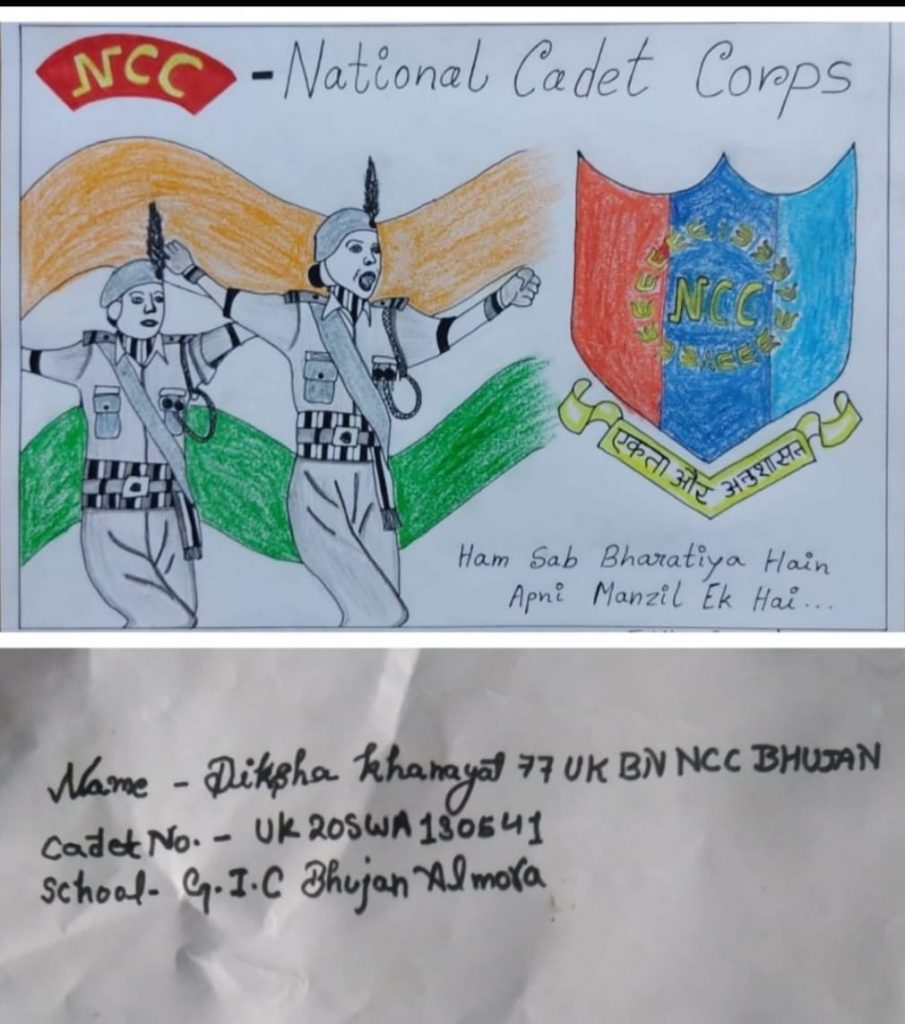 NCC - National Cadet Corps
NCC
एकता और अनुशासन
Ham Sab Bharatiya Hain
Apni Manzil Ek Hai...
Name - Diksha Khanayat 77 UK BN NCC BHUJAN
Cadet No. - UK20SWA130541
School- G.I.C Bhujan Almora